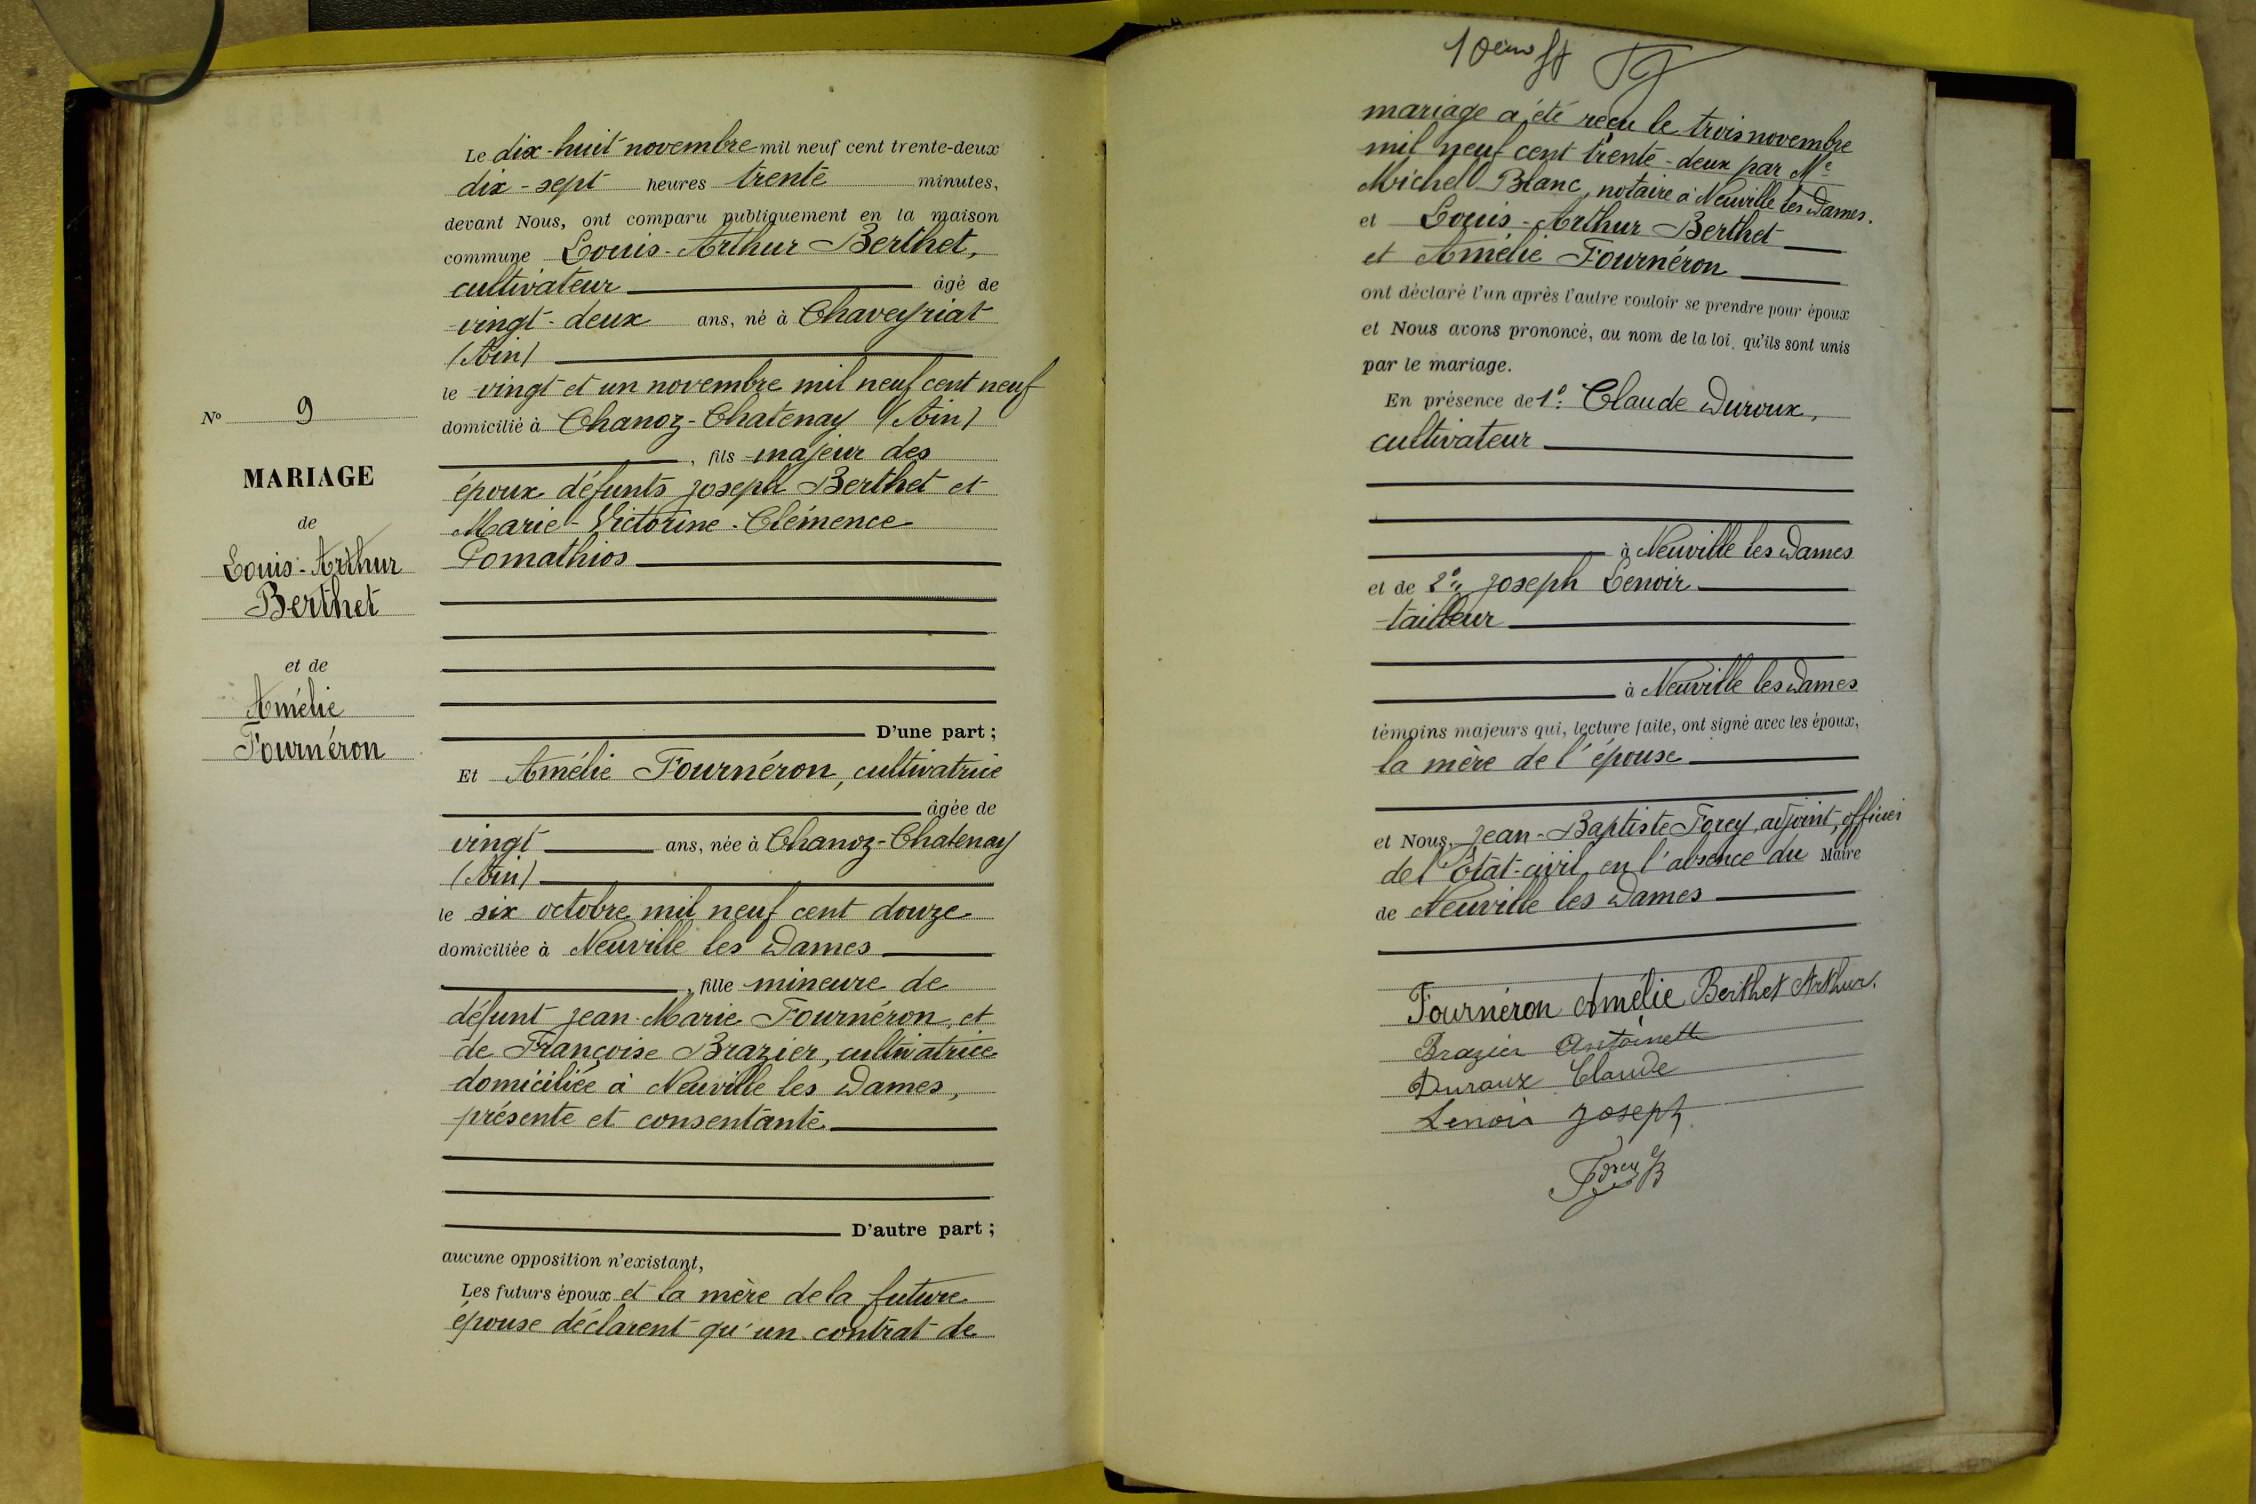 Le dix-huit novembre mil neuf cent trente-deux
dix-sept heures trente minutes,
devant Nous, ont comparu publiquement en la maison
commune Louis-Arthur Berthet,
cultivateur âgé de
vingt-deux ans, né à Chaveyriat
(Ain)
le vingt et un novembre mil neuf cent neuf
domicilié à Chanoz-Chatenay (Ain)
, fils majeur des
époux défunts Joseph Berthet et
Marie-Victorine-Clémence
Pomathios
D'une part ;
Et Amélie Fournéron, cultivatrice
âgée de
vingt ans, née à Chanoz-Chatenay
(Ain)
le six octobre mil neuf cent douze
domiciliée à Neuville les Dames
, fille mineure de
défunt Jean-Marie Fournéron, et
de Françoise Brazier, cultivatrice
domiciliée à Neuville les Dames,
présente et consentante
D'autre part ;
aucune opposition n'existant,
Les futurs époux et la mère de la future
épouse déclarent qu'un contrat de
N° 9
MARIAGE
de
Louis-Arthur
Berthet
et de
Amélie
Fournéron
mariage a été reçu le trois novembre
mil neuf cent trente-deux par Me
Michel Blanc, notaire à Neuville les Dames.
et Louis-Arthur Berthet
et Amélie Fournéron
ont déclaré l'un après l'autre vouloir se prendre pour époux
et Nous avons prononcé, au nom de la loi, qu'ils sont unis
par le mariage.
En présence de 1°: Claude Duroux,
cultivateur
à Neuville les Dames
et de 2° Joseph Lenoir
tailleur
à Neuville les Dames
témoins majeurs qui, lecture faite, ont signé avec les époux,
la mère de l'épouse
et Nous, Jean-Baptiste Forey, adjoint, officier
de l'Etat-civil en l'absence du Maire
de Neuville les Dames
Fournéron Amélie Berthet Arthur.
Brazier Antoinette
Duroux Claude
Lenoir Joseph
Forey JB